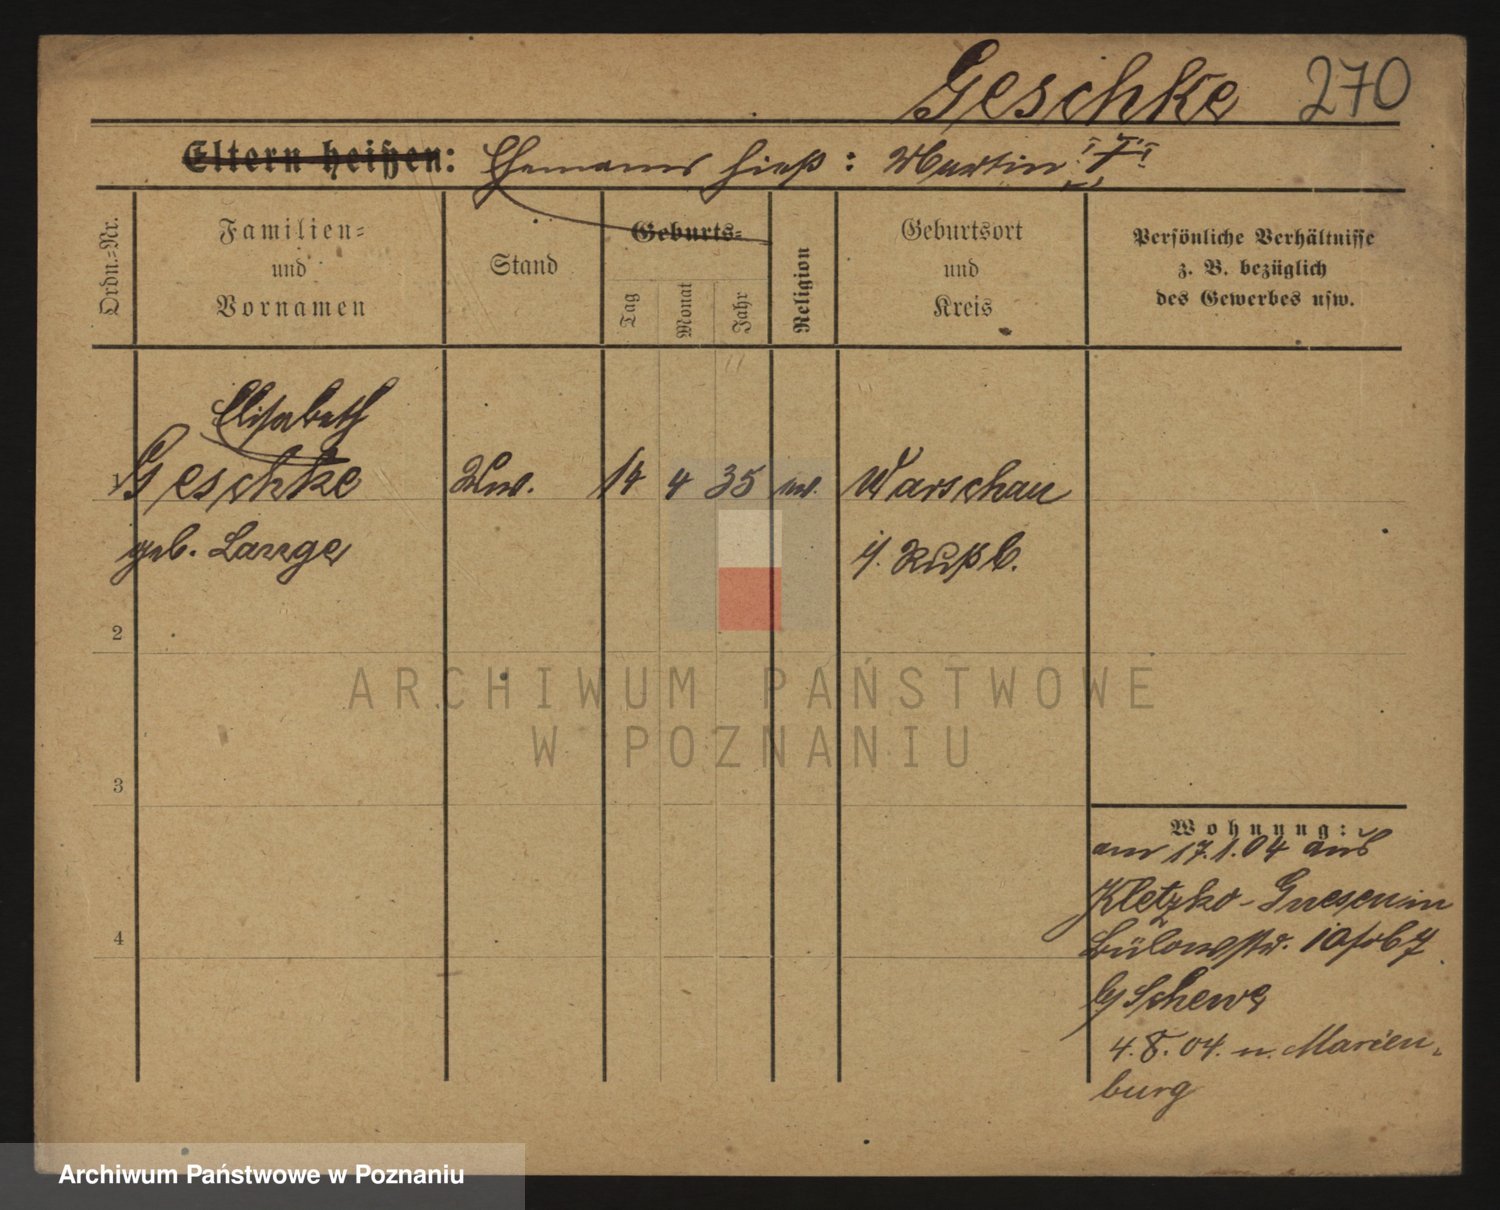 Geschke 270
Eltern heißen: Ehemann hieß: Martin
Ordn.-Nr.
Familien-
und
Vornamen
Stand
Geburts-
Tag
Monat
Jahr
Religion
Geburtsort
und
Kreis
Persönliche Verhältnisse
z. B. bezüglich
des Gewerbes usw.
Elisabeth
1 Geschke Ww. 14 4 35 ev. Warschau
geb. Lange i/. Rußl.
2
3
4
Wohnung:
am 17.1.04 aus
Kletzko-Gnesen in
Bülowstr. 10
b/ Schewe
4.8.04. n. Marien-
burg
ARCHIWUM PAŃSTWOWE
W POZNANIU
Archiwum Państwowe w Poznaniu